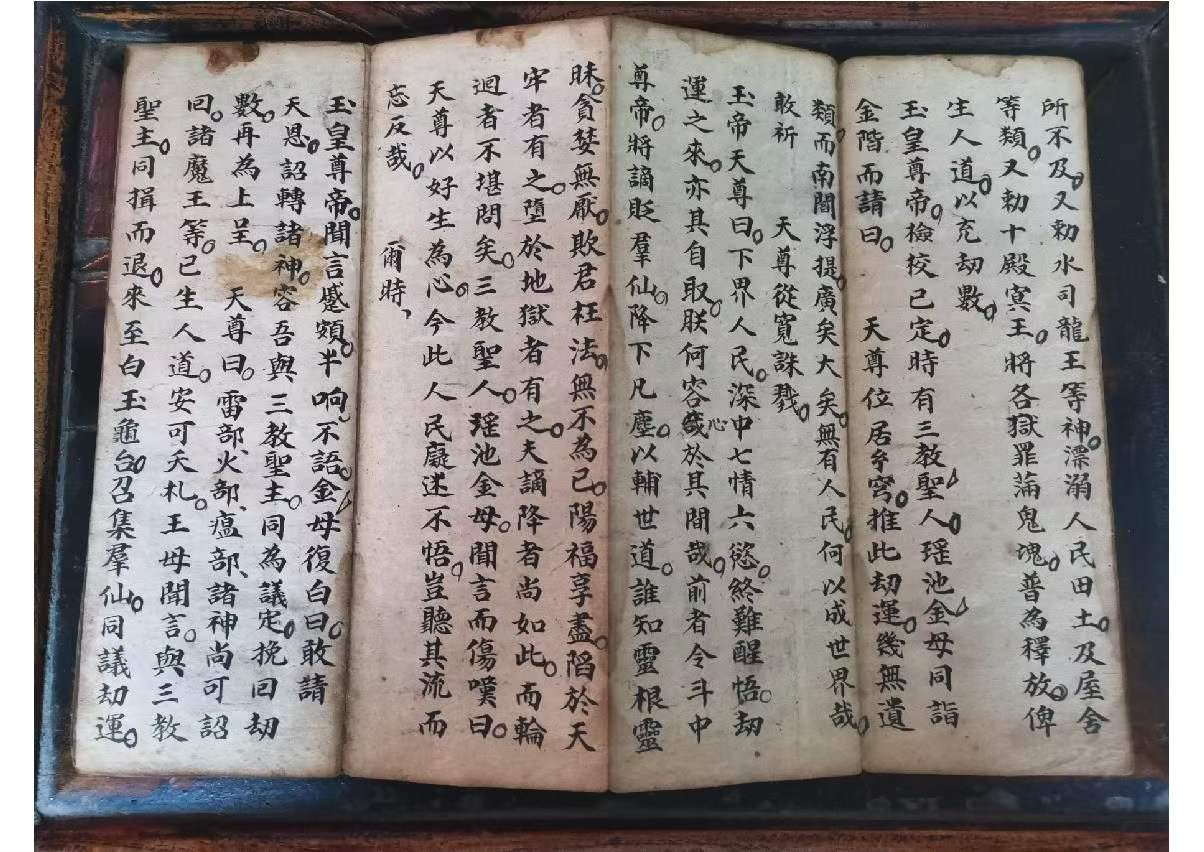 所不及。又勅水司龍王等神。漂溺人民田土。及屋舍
等類。又勅十殿冥王。將各獄罪滿鬼魂。普為釋放。俾
生人道。以充劫數。
玉皇尊帝。檢校已定。時有三教聖人。瑶池金母同詣
金階而請曰。 天尊位居穹。推此劫運。幾無遺
類。而南閻浮提。廣矣大矣。無有人民。何以成世界哉。
敢祈 天尊從寬誅戮。
玉帝天尊曰。下界人民。深中七情六慾。終難醒悟。劫
運之來。亦其自取。朕何容心於其間哉。前者令斗中
尊帝。將謫貶羣仙。降下凡塵。以輔世道。誰知靈根靈
昧。貪婪無厭。欺君枉法。無不為已。陽福享盡。陷於天
牢者有之。墮於地獄者有之。夫謫降者尚如此。而輪
迴者不堪問矣。三教聖人。瑶池金母。聞言而傷嘆曰。
天尊以好生為心。今此人民癡迷不悟。豈聽其流而
忘反哉。 爾時、
玉皇尊帝。聞言蹙頞。半晌不語。金母復白曰。敢請
天恩。詔轉諸神。容吾與三教聖主。同為議定。挽回劫
數。再為上呈。 天尊曰。雷部、火部、瘟部、諸神尚可詔
回。諸魔王等。已生人道。安可夭札。王母聞言。與三教
聖主。同揖而退。來至白玉龜台。召集羣仙。同議劫運。